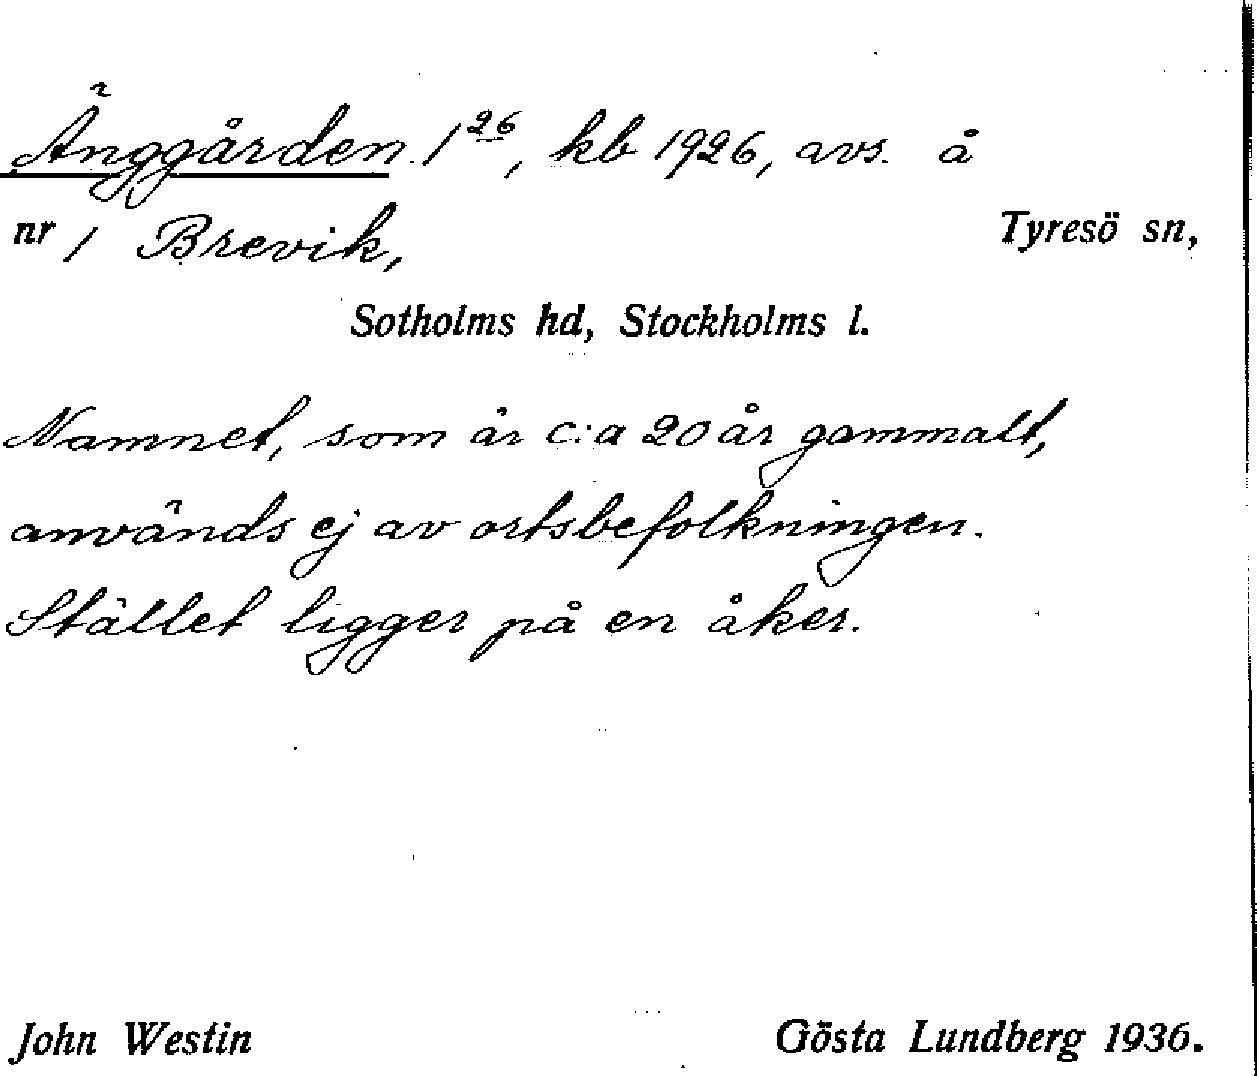 Änggården 1²⁶, kb 1926, avs. å
nr 1 Brevik, Tyresö sn,
Sotholms hd, Stockholms l.
Namnet, som är c:a 20 år gammalt,
används ej av ortsbefolkningen.
Stället ligger på en åker.
John Westin Gösta Lundberg 1936.